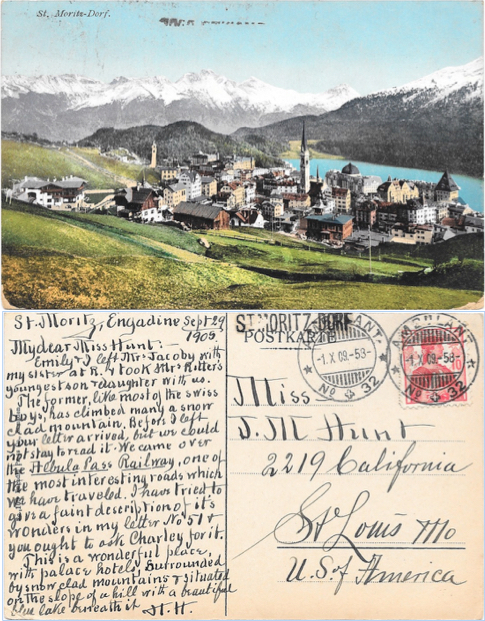 St. Moritz-Dorf.
St. Moritz, Engadine Sept 29
1909.
My dear Miss Hunt.
Emily & I left Mr Jacoby with
my sister at R. & took Mrs Ritter's
youngest son & daughter with us.
The former, like most of the swiss
boys, has climbed many a snow
clad mountain. Before I left
your letter arrived, but we could
not stay to read it. We came over
the Albula Pass Railway, one of
the most interesting roads which
we have traveled. I have tried to
give a faint description of it's
wonders in my letter No 51 &
you ought to ask Charley for it.
This is a wonderful place,
with palace hotels surrounded
by snow clad mountains & situated
on the slope of a hill with a beautiful
blue lake beneath it. H. H.
ST. MORITZ-DORF
POSTKARTE
AMBULANT.
-1.X.09-5
No 32
AMBULANT.
-1.X.09-5
No 32
10
Miss
J. M Hunt
2219 California
St Louis Mo
U.S. of America